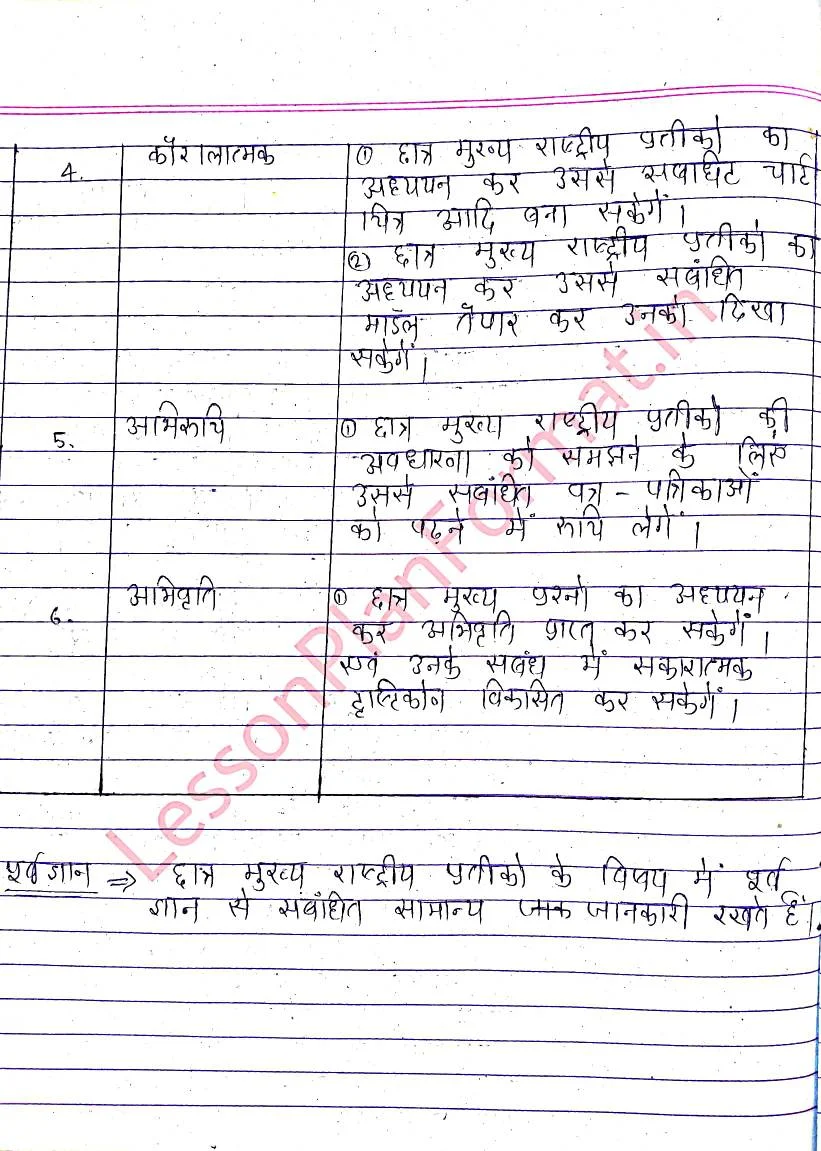 4. कौशलात्मक ① छात्र मुख्य राष्ट्रीय प्रतीको का
अध्ययन कर उससे सबांधित चार्ट
चित्र आदि बना सकेगें।
② छात्र मुख्य राष्ट्रीय प्रतीको का
अध्ययन कर उससे सबंधित
मॉडल तैयार कर उनको दिखा
सकेगें।
5. अभिरूचि ① छात्र मुख्य राष्ट्रीय प्रतीको की
अवधारना को समझने के लिए
उससे सबंधित पत्र - पत्रिकाओं
को पढ़ने में रूचि लेगें।
6. अभिवृति ① छात्र मुख्य प्रश्नो का अध्ययन
कर अभिवृति प्राप्त कर सकेगें।
एवं उनके सबंध में सकारात्मक
दृष्टिकोन विकासित कर सकेगें।
पूर्व ज्ञान ⇒ छात्र मुख्य राष्ट्रीय प्रतीको के विषय में पूर्व
ज्ञान से सबंधित सामान्य जाक जानकारी रखते हैं।
LessonPlanFormat.in